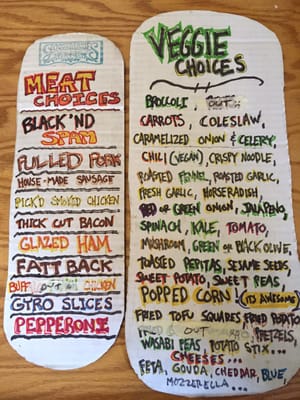 MEAT
CHOICES
BLACK'ND
SPAM
PULLED PORK
HOUSE-MADE SAUSAGE
PICK'D SMOKED CHICKEN
THICK CUT BACON
GLAZED HAM
FATT BACK
BUFF OUT CHICKEN
GYRO SLICES
PEPPERONI
VEGGIE
CHOICES
BROCCOLI, OUT
CARROTS, COLESLAW,
CARAMELIZED ONION & CELERY,
CHILI (VEGAN), CRISPY NOODLE,
ROASTED FENNEL, ROASTED GARLIC,
FRESH GARLIC, HORSERADISH,
RED OR GREEN ONION, JALAPENO,
SPINACH, KALE, TOMATO,
MUSHROOM, GREEN OR BLACK OLIVE,
TOASTED PEPITAS, SESAME SEEDS,
SWEET POTATO, SWEET PEAS,
POPPED CORN! (ITS AWESOME)
FRIED TOFU SQUARES FRIED POTATO
OUT PRETZELS,
WASABI PEAS, POTATO STIX...
CHEESES...
FETA, GOUDA, CHEDDAR, BLUE,
MOZZERELLA...